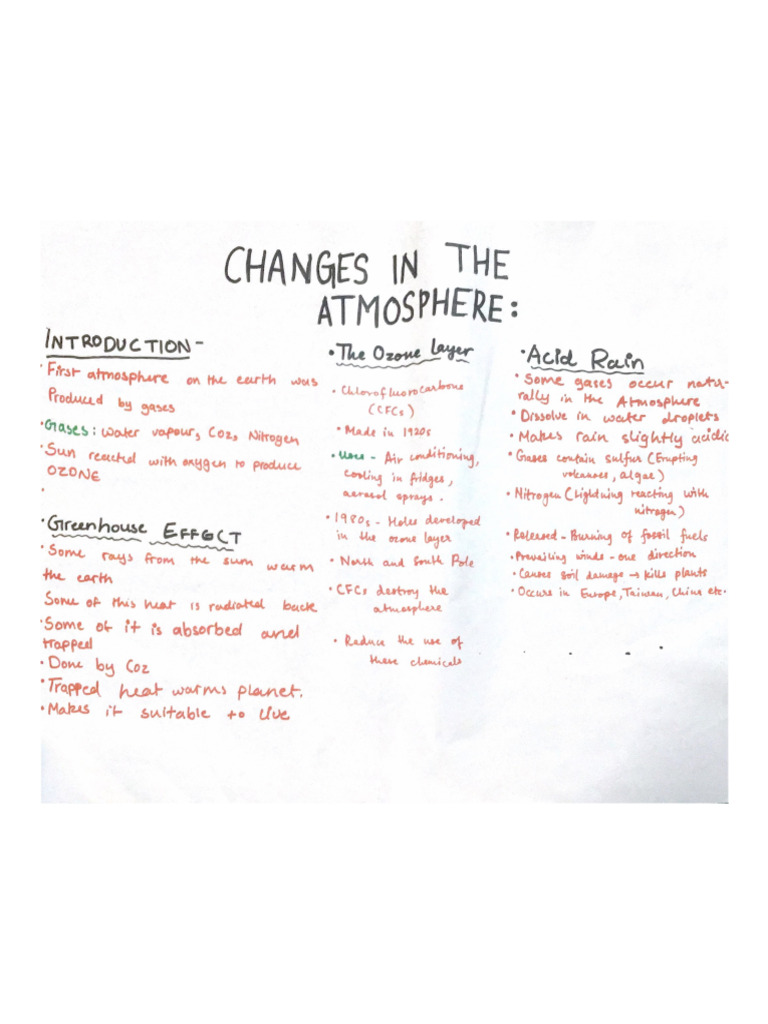 CHANGES IN THE
ATMOSPHERE:
INTRODUCTION-
• First atmosphere on the earth was
Produced by gases
• Gases: Water vapour, Co2, Nitrogen
• Sun reacted with oxygen to produce
OZONE
•
• Greenhouse EFFECT
• Some rays from the sun warm
the earth
Some of this heat is radiated back
• Some of it is absorbed and
trapped
• Done by Co2
• Trapped heat warms planet.
• Makes it suitable to live
• The Ozone layer
• Chlorofluorocarbone
(CFCs)
• Made in 1920s
• Uses - Air conditioning,
cooling in fridges,
aerosol sprays.
• 1980s - Holes developed
in the ozone layer
• North and South Pole
• CFCs destroy the
atmosphere
• Reduce the use of
these chemicals
• Acid Rain
• Some gases occur natur-
rally in the Atmosphere
• Dissolve in water droplets
• Makes rain slightly acidic
• Gases contain sulfur (Erupting
volcanoes, algae)
• Nitrogen (Lightning reacting with
nitrogen)
• Released - Burning of fossil fuels
• Prevailing winds - one direction
• Causes soil damage → kills plants
• Occurs in Europe, Taiwan, China etc.